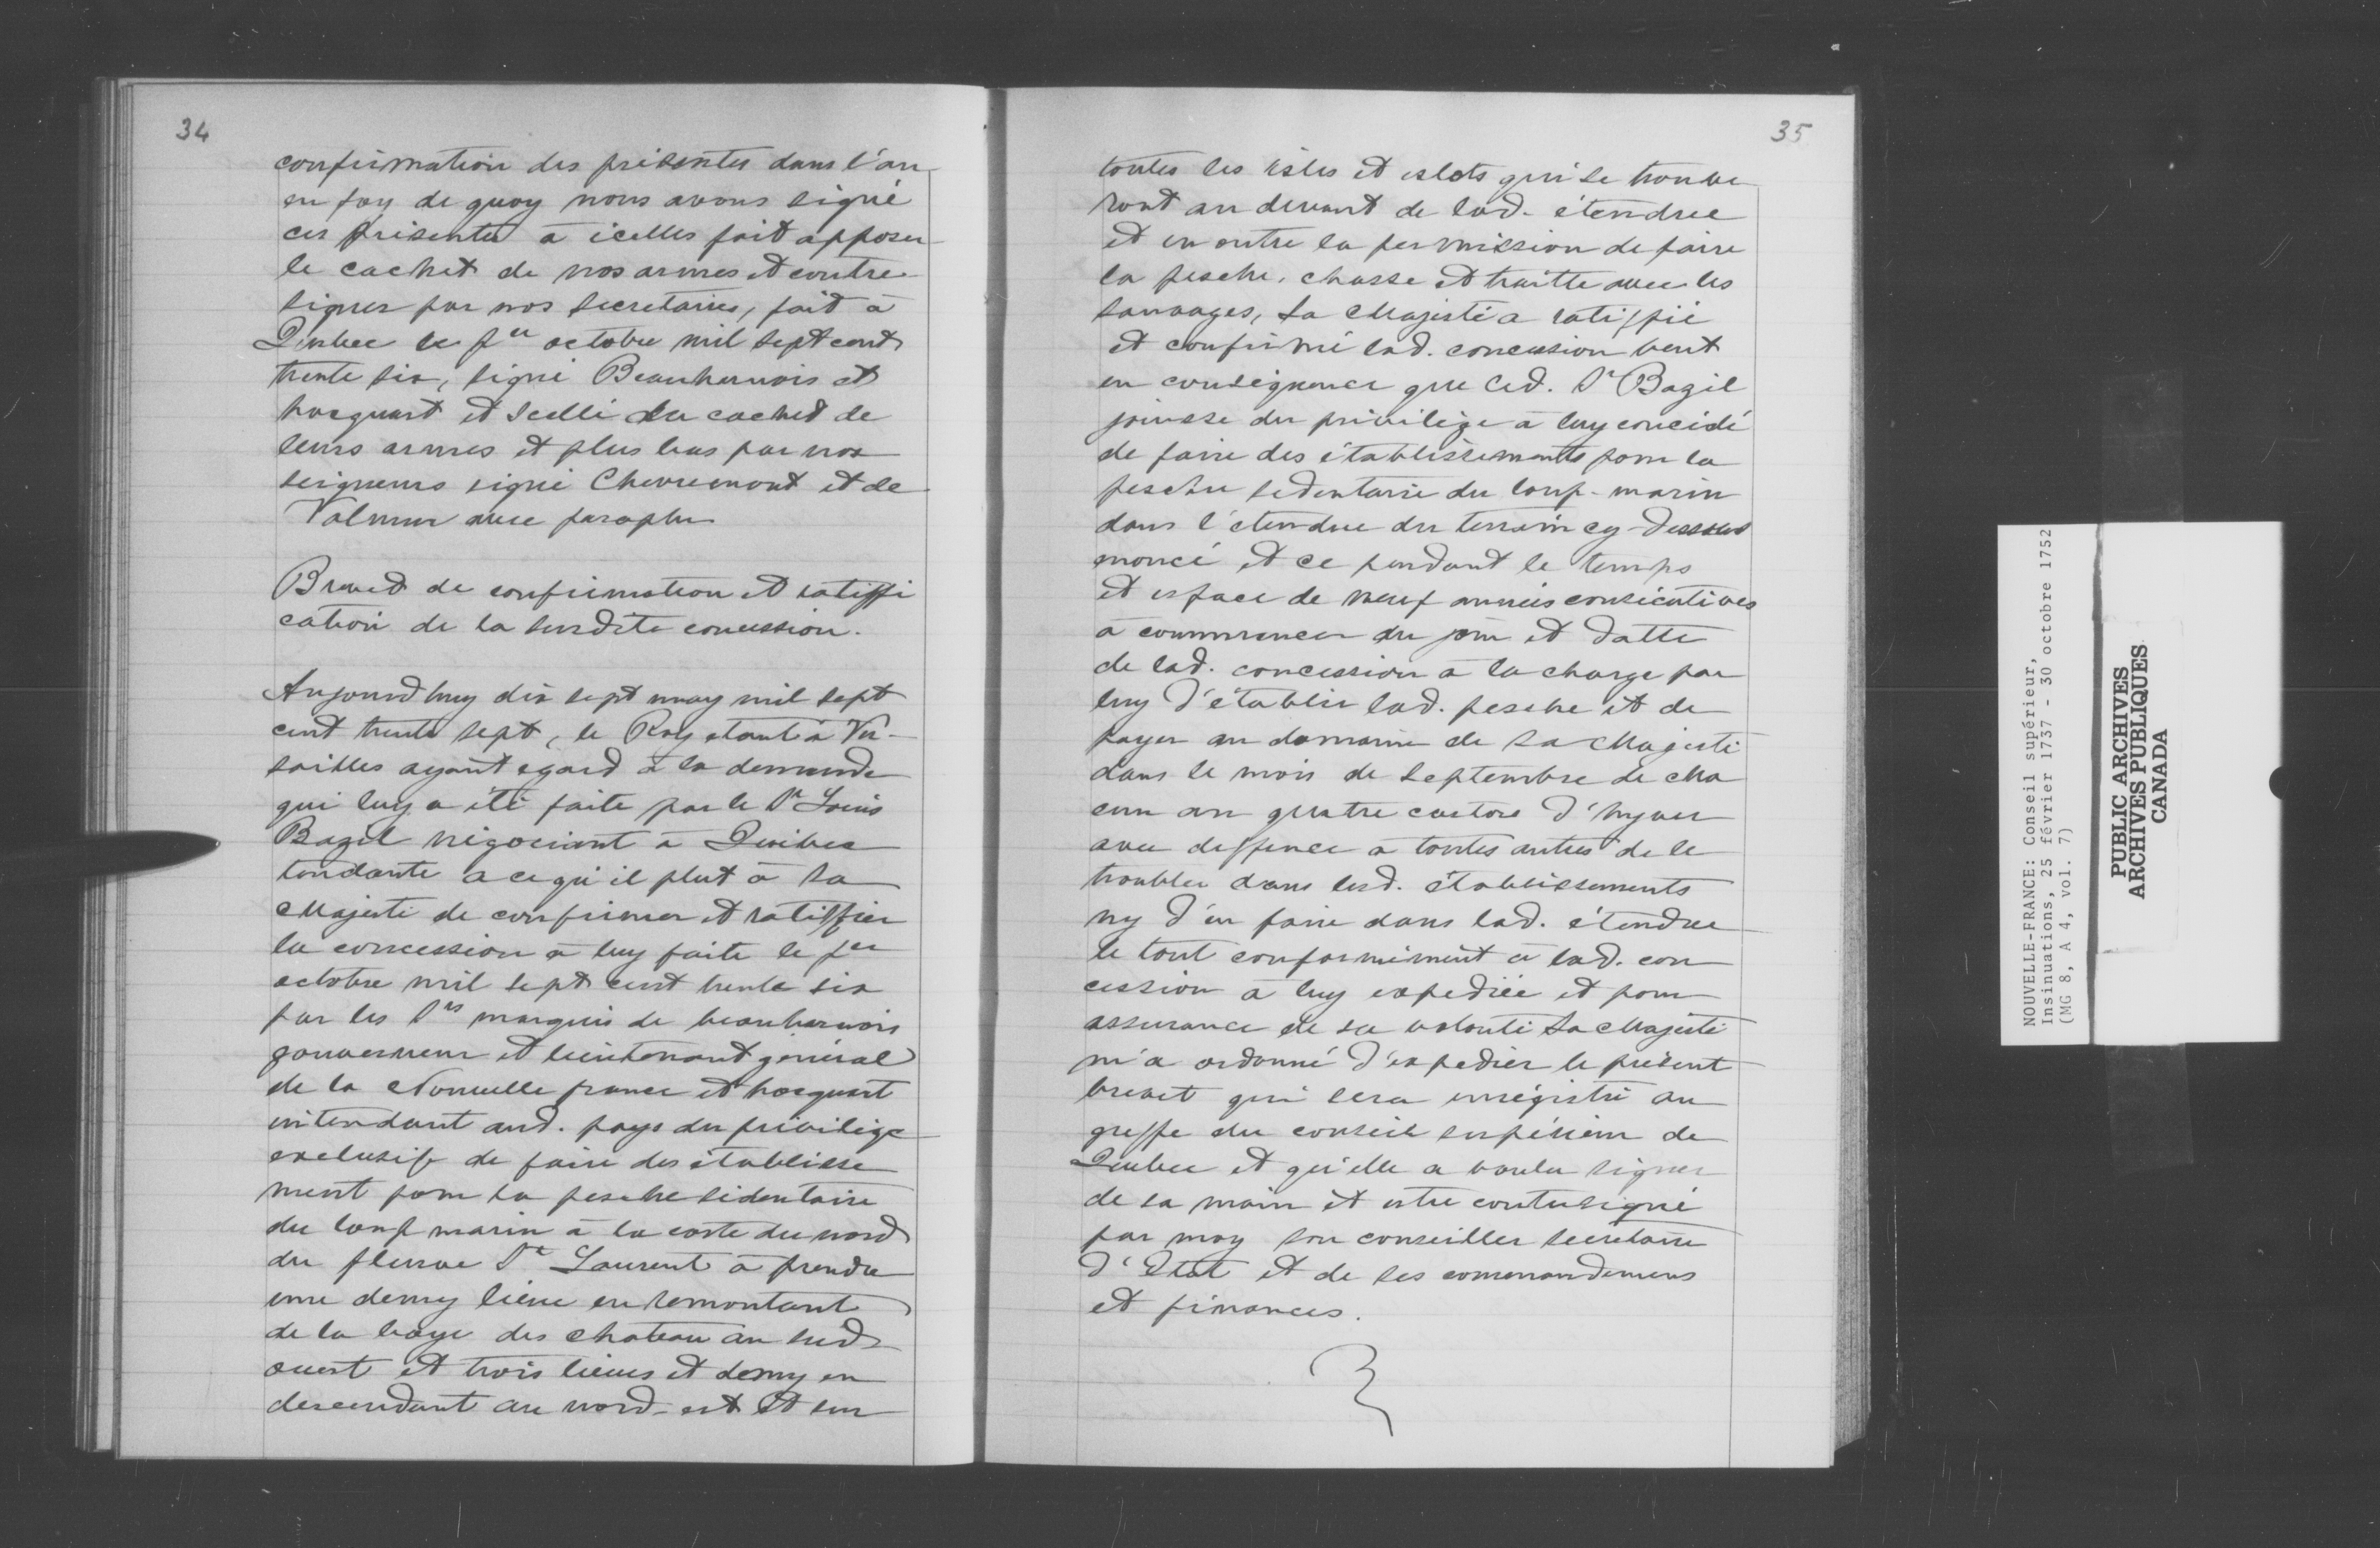 34
confirmation des présentes dans l'an
en foy de quoy nous avons signé
ces présentes à icelles fait apposer
le cachet de nos armes et contre
signer par nos secretaires, fait à
Quebec le per octobre mil sept cent
trente six, signé Beauharnois et
hocquart et scellé du cachet de
leurs armes et plus bas par nos
seigneurs signé Chevremont et de
Valmur avec paraphe
Brevet de confirmation et ratiffi
cation de la susdite concession.
Aujourd'huy dix sept may mil sept
cent trente sept, le Roy etant à Ver-
sailles ayant egard à la demande
qui luy a été faite par le Sr Louis
Bazil négociant à Quebec
tendante a ce qu'il plut à Sa
Majesté de confirmer et ratiffier
la concession à luy faite le per
octobre mil sept cent trente six
par les Srs marquis de beauharnois
gouverneur et lieutenant général
de la Nouvelle france et hocquart
intendant aud. pays du privilège
exclusif de faire des établisse
ment pour la pesche sédentaire
du loup marin à la coste du nord
du fleuve St Laurent à prendre
une demy lieue en remontant
de la baye des chateau au sud
ouest et trois lieues et demy en
descendant au nord-est et sur
35
toutes les isles et islots qui se trouve
ront au devant de lad. étendue
et en outre la permission de faire
la pesche, chasse et traitte avec les
sauvages, Sa Majesté a ratiffié
et confirmé lad. concession veut
en conséquence que led. Sr Bazil
jouisse du privilège à luy concédé
de faire des établissements pour la
pesche sedentaire du loup-marin
dans l'étendue du terrain cy-dessus
énoncé et ce pendant le temps
et espace de neuf années consécutives
à commencer du jour et datte
de lad. concession à la charge par
luy d'établir lad. pesche et de
payer au domaine de Sa Majesté
dans le mois de septembre de cha
cun an quatre castors d'hyver
avec deffence à toutes autres de le
troubler dans lesd. établissements
ny d'en faire dans lad. étendue
le tout conformément à lad. con
cession à luy expediée et pour
assurance de sa volonté Sa Majesté
m'a ordonné d'expedier le présent
brevet qui sera enrégistré au
greffe du conseil supérieur de
Quebec et qu'elle a voulu signer
de sa main et estre contresigné
par moy son conseiller secrétaire
d'Etat et de ses commandemens
et finances.
NOUVELLE-FRANCE: Conseil supérieur,
Insinuations, 25 février 1737 - 30 octobre 1752
(MG 8, A 4, vol. 7)
PUBLIC ARCHIVES
ARCHIVES PUBLIQUES
CANADA